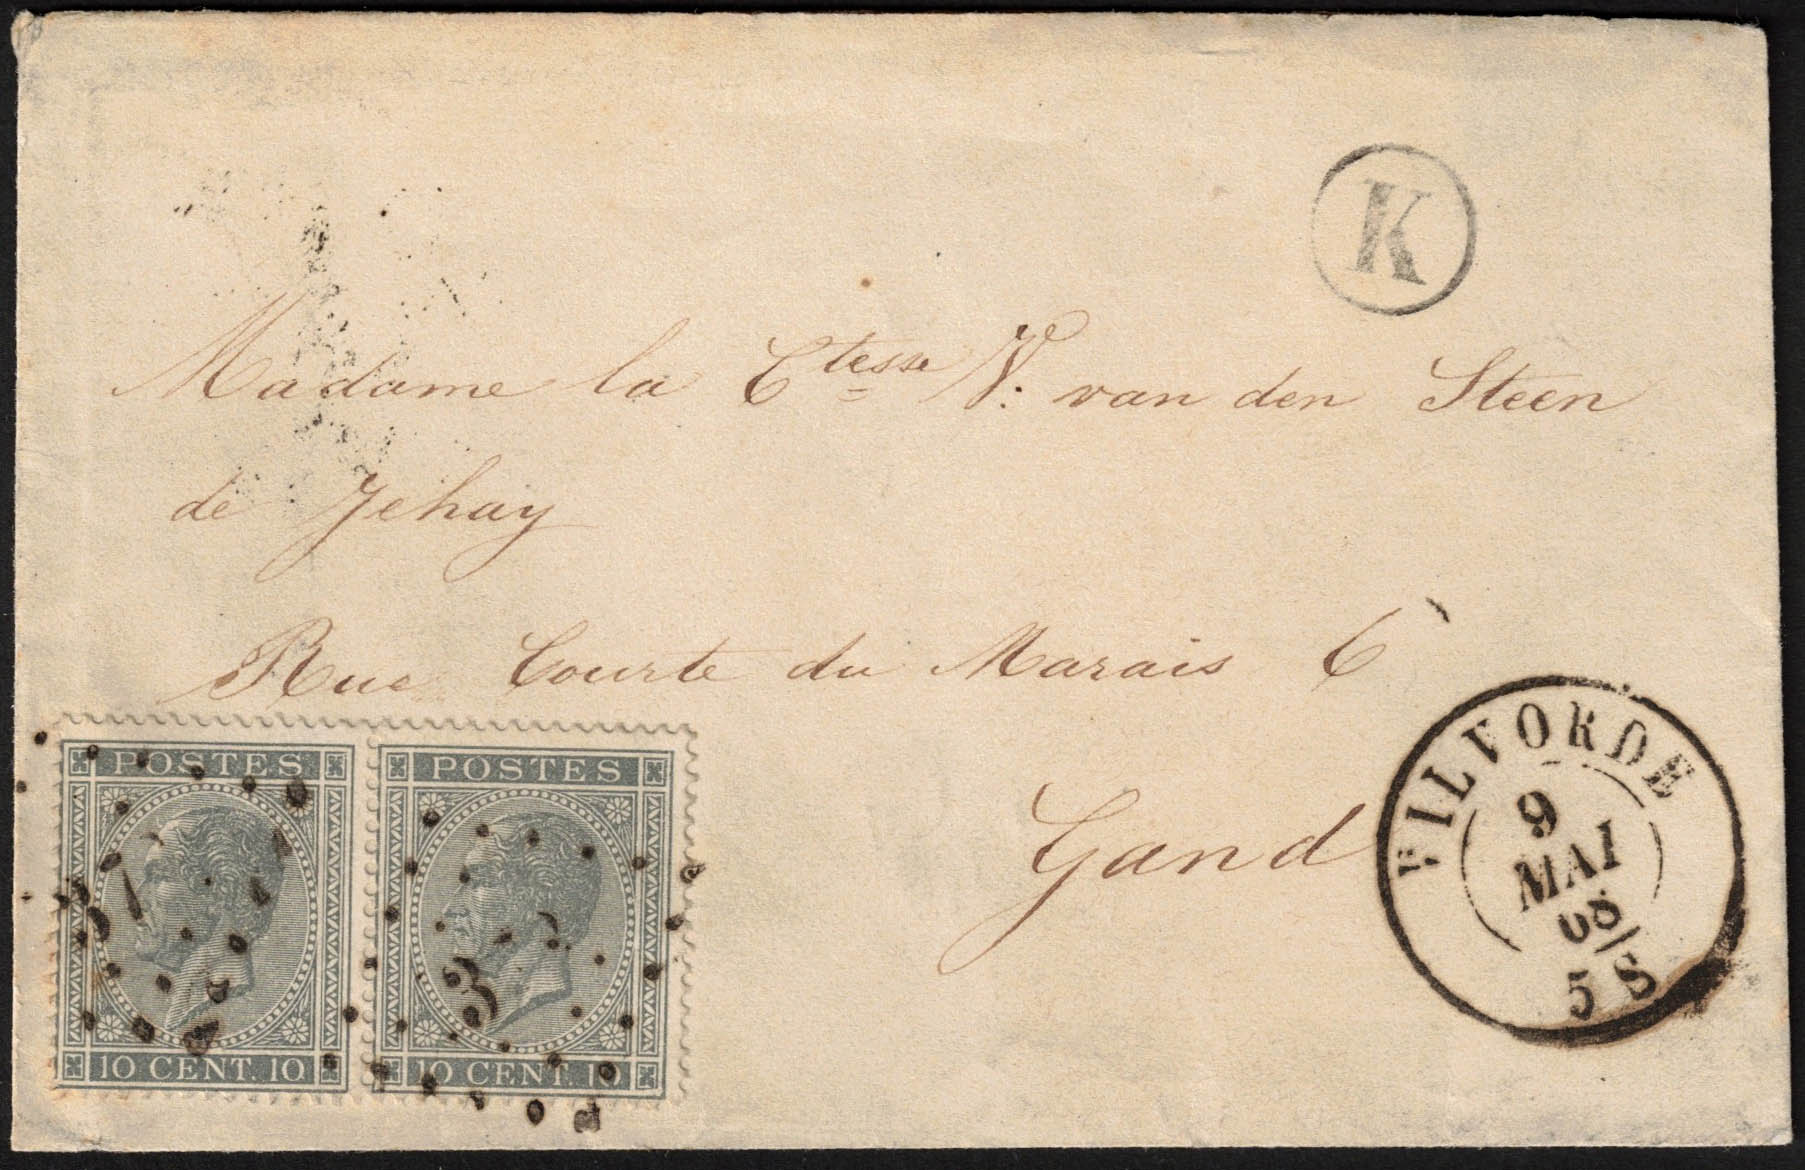 K
Madame la Ctesse V: van den Steen
de Jehay
Rue Courte du Marais 6
Gand
VILVORDE
9
MAI
68
5 S
POSTES
10 CENT. 10
POSTES
10 CENT. 10